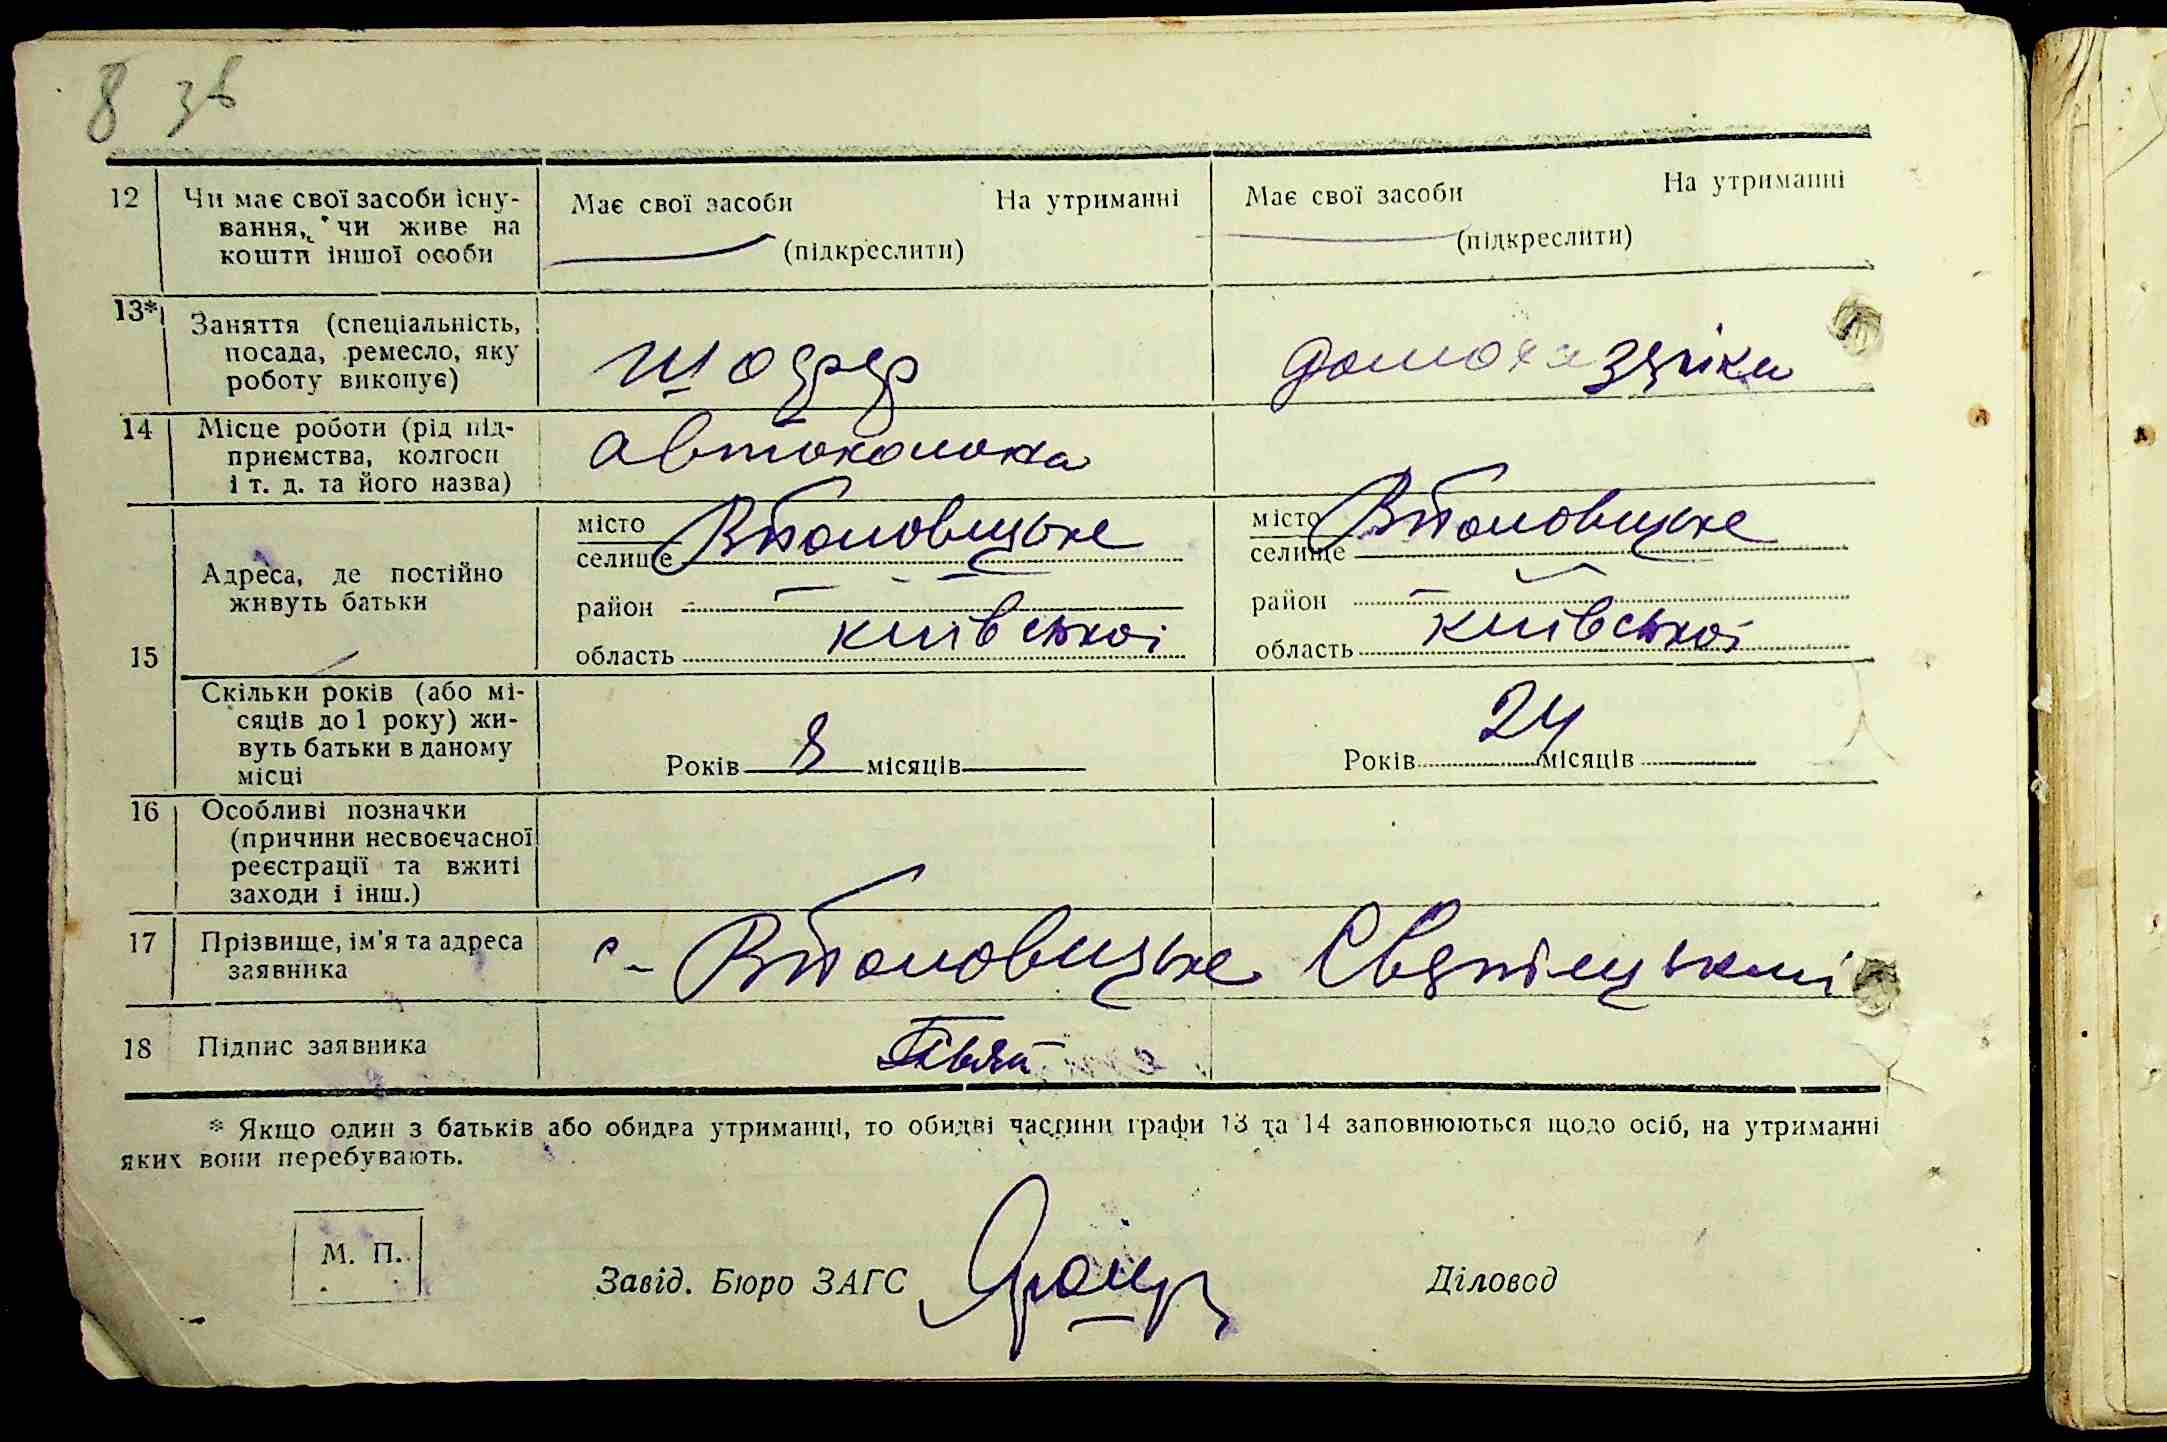 8 зв
12 Чи має свої засоби існу- Має свої засоби На утриманні Має свої засоби На утриманні
вання, чи живе на (підкреслити) (підкреслити)
кошти іншої особи
13* Заняття (спеціальність,
посада, ремесло, яку шофер домохазяіка
роботу виконує)
14 Місце роботи (рід під- автоколона
приємства, колгосп
і т. д. та його назва)
15 Адреса, де постійно живуть батьки
місто
селище
район
область київської
місто
селище
район
область київської
Скільки років (або мі-
сяців до 1 року) жи-
вуть батьки в даному
місці
Років 8 місяців
Років 24 місяців
16 Особливі позначки
(причини несвоєчасної
реєстрації та вжиті
заходи і інш.)
17 Прізвище, ім'я та адреса
заявника
с-
18 Підпис заявника
* Якщо один з батьків або обидва утриманці, то обидві частини графи 13 та 14 заповнюються щодо осіб, на утриманні
яких вони перебувають.
М. П.
Завід. Бюро ЗАГС Діловод